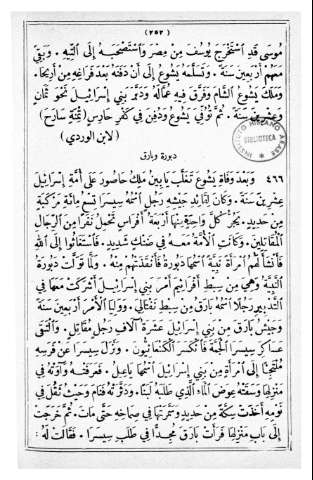 (٢٥٢)
مُوسَى قَدِ ٱسْتَخْرَجَ يُوسُفَ مِنْ مِصْرَ وَٱسْتَصْحَبَهُ إِلَى ٱلتِّيهِ. وَبَقِيَ
مَعَهُمْ أَرْبَعِينَ سَنَةً. وَتَسَلَّمَهُ يَشُوعُ إِلَى أَنْ دَفَنَهُ بَعْدَ فَرَاغِهِ مِنْ أَرِيحَا.
وَمَلَكَ يَشُوعُ ٱلشَّامَ وَفَرَّقَ فِيهِ عُمَّالَهُ وَدَبَّرَ بَنِي إِسْرَائِيلَ نَحْوَ ثَمَانٍ
وَعِشْرِينَ سَنَةً. ثُمَّ تُوُفِّيَ يَشُوعُ وَدُفِنَ فِي كَفْرِ حَارِسَ (تِمْنَةِ سَارَحَ)
(لابن الوردي)
دبورة وبارق
٤٦٦ وَبَعْدَ وَفَاةِ يَشُوعَ تَغَلَّبَ يَابِينُ مَلِكُ حَاصُورَ عَلَى أُمَّةِ إِسْرَائِيلَ
عِشْرِينَ سَنَةً. وَكَانَ لِقَائِدِ جَيْشِهِ رَجُلٍ ٱسْمُهُ سِيسَرَا تِسْعُ مِائَةِ مَرْكَبَةٍ
مِنْ حَدِيدٍ. يَجُرُّ كُلَّ وَاحِدَةٍ مِنْهَا أَرْبَعَةُ أَفْرَاسٍ تَحْمِلُ نَفَرًا مِنَ ٱلرِّجَالِ
ٱلْمُقَاتِلِينَ. وَكَانَتِ ٱلْأُمَّةُ مَعَهُ فِي ضَنْكٍ شَدِيدٍ. فَٱسْتَغَاثُوا إِلَى ٱللهِ
فَأَنْشَأَ لَهُمُ ٱمْرَأَةً نَبِيَّةً ٱسْمُهَا دَبُورَةُ فَأَنْقَذَتْهُمْ مِنْهُ. وَلَمَّا تَوَلَّتْ دَبُورَةُ
ٱلنَّبِيَّةُ وَهِيَ مِنْ سِبْطِ أَفْرَايِمَ أَمْرَ بَنِي إِسْرَائِيلَ أَشْرَكَتْ مَعَهَا فِي
ٱلتَّدْبِيرِ رَجُلًا ٱسْمُهُ بَارَقُ مِنْ سِبْطِ نَفْتَالِي. وَوَلِيَا ٱلْأَمْرَ أَرْبَعِينَ سَنَةً
وَجَيَّشَ بَارَقُ مِنْ بَنِي إِسْرَائِيلَ عَشَرَةَ آلَافِ رَجُلٍ مُقَاتِلٍ. وَٱلْتَقَى
عَسَاكِرَ سِيسَرَا ٱلْجَمَّةَ فَٱنْكَسَرَ ٱلْكَنْعَانِيُّونَ. وَنَزَلَ سِيسَرَا عَنْ فَرَسِهِ
مُلْتَجِئًا إِلَى ٱمْرَأَةٍ مِنْ بَنِي إِسْرَائِيلَ ٱسْمُهَا يَاعِيلُ. فَعَرَفَتْهُ وَآوَتْهُ فِي
مَنْزِلِهَا وَسَقَتْهُ عِوَضَ ٱلْمَاءِ ٱلَّذِي طَلَبَهُ لَبَنًا. وَدَثَّرَتْهُ فَنَامَ وَحَيْثُ ثَقُلَ فِي
نَوْمِهِ أَخَذَتْ سِكَّةً مِنْ حَدِيدٍ وَسَمَّرَتْهَا فِي صِمَاخِهِ حَتَّى مَاتَ. ثُمَّ خَرَجَتْ
إِلَى بَابِ مَنْزِلِهَا فَرَأَتْ بَارَقَ مُجِدًّا فِي طَلَبِ سِيسَرَا. فَقَالَتْ لَهُ:
INSTITUTO HISPANO ARABE
BIBLIOTECA